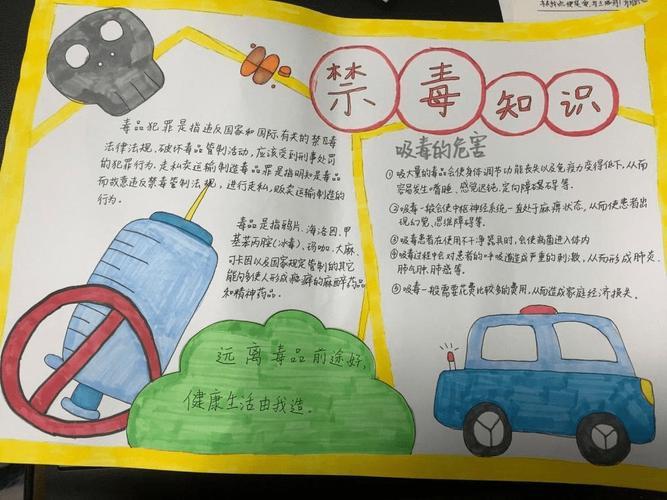 禁毒知识
毒品犯罪是指违反国家和国际有关的禁毒
法律法规，破坏毒品管制活动，应该受到刑事处罚
的犯罪行为。走私卖运输制造毒品罪是指明知是毒品
而故意违反禁毒管制法规，进行走私，贩卖运输制造的
行为。
毒品是指鸦片、海洛因、甲
基苯丙胺(冰毒)、吗咖、大麻、
可卡因以及国家规定管制的其它
能够使人形成瘾癖的麻醉药品
和精神药品。
远离毒品前途好，
健康生活由我造。
吸毒的危害
①吸大量的毒品会使身体调节功能丧失以及免疫力变得低下，从而
容易发生嗜睡、感觉迟钝，定向障碍等。
②吸毒一般会使中枢神经系统一直处于麻痹状态，从而使患者出
现幻觉、思维障碍等。
③吸毒患者在使用不干净器具时，会使病菌进入体内
④吸毒过程中会对患者的呼吸道造成严重的刺激，从而形成肺炎、
肺气肿、肺癌等。
⑤吸毒一般需要花费比较多的费用，从而造成家庭经济损失。